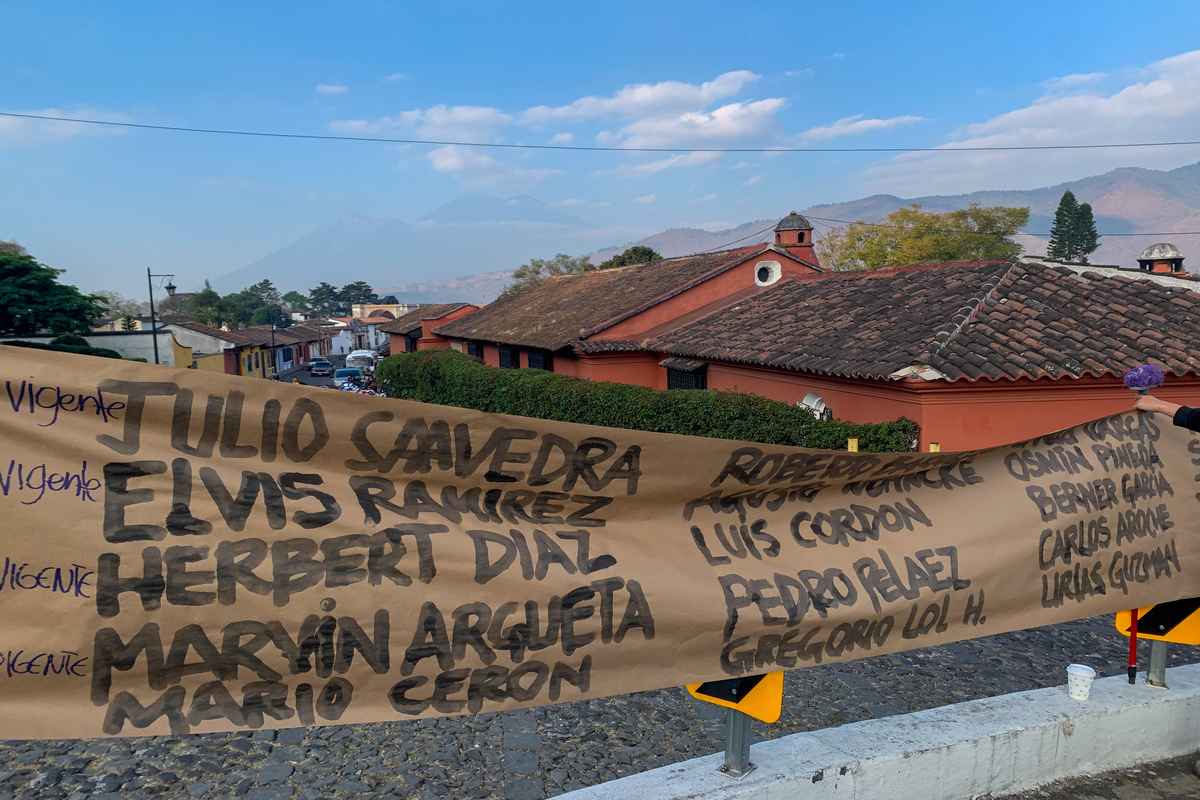 Vigente JULIO SAAVEDRA
Vigente ELVIS RAMIREZ
VIGENTE HERBERT DIAZ
VIGENTE MARVIN ARGUETA
MARIO CERON
ROBERTO
LUIS CORDON
PEDRO PELAEZ
GREGORIO LOL H.
VARGAS
OSMIN PINEDA
BERNER GARCIA
CARLOS
URIAS GUZMAN